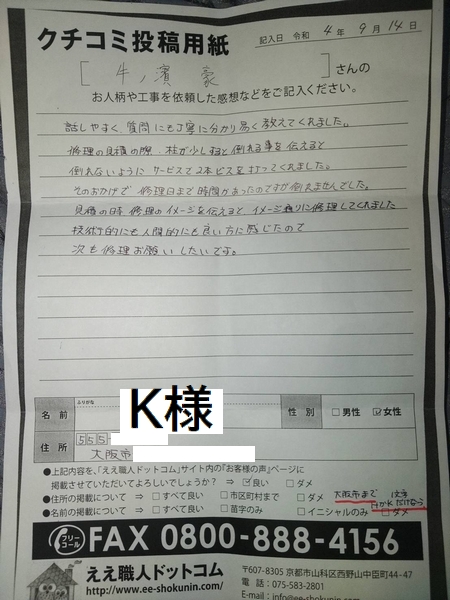 クチコミ投稿用紙
記入日 令和 4年 9月 14日
[牛ノ濱 豪]さんの
お人柄や工事を依頼した感想などをご記入ください。
話しやすく、質問にも丁寧に分かり易く教えてくれました。
修理の見積の際、柱が少しすると倒れる事を伝えると
倒れないように サービスで2本ビスを打ってくれました。
そのおかげで 修理日まで時間があったのですが倒れませんでした。
見積の時 修理のイメージを伝えると、イメージ通りに修理してくれました
技術的にも人間的にも良い方に感じたので
次も修理お願いしたいです。
ふりがな
名前 K様 性別 □男性 ☑女性
住所 555
大阪市
●上記内容を、「ええ職人ドットコム」サイト内の「お客様の声」ページに
掲載させていただいてよろしいでしょうか? ⇒ ☑良い □ダメ
●住所の掲載について ⇒ □すべて良い □市区町村まで □ダメ 大阪市まで
●名前の掲載について ⇒ □すべて良い □苗字のみ □イニシャルのみ □ダメ
フリーコール FAX 0800-888-4156
ええ職人ドットコム
http://www.ee-shokunin.com/
〒607-8305 京都市山科区西野山中臣町44-47
電話:075-583-2801
E-mail:info@ee-shokunin.com